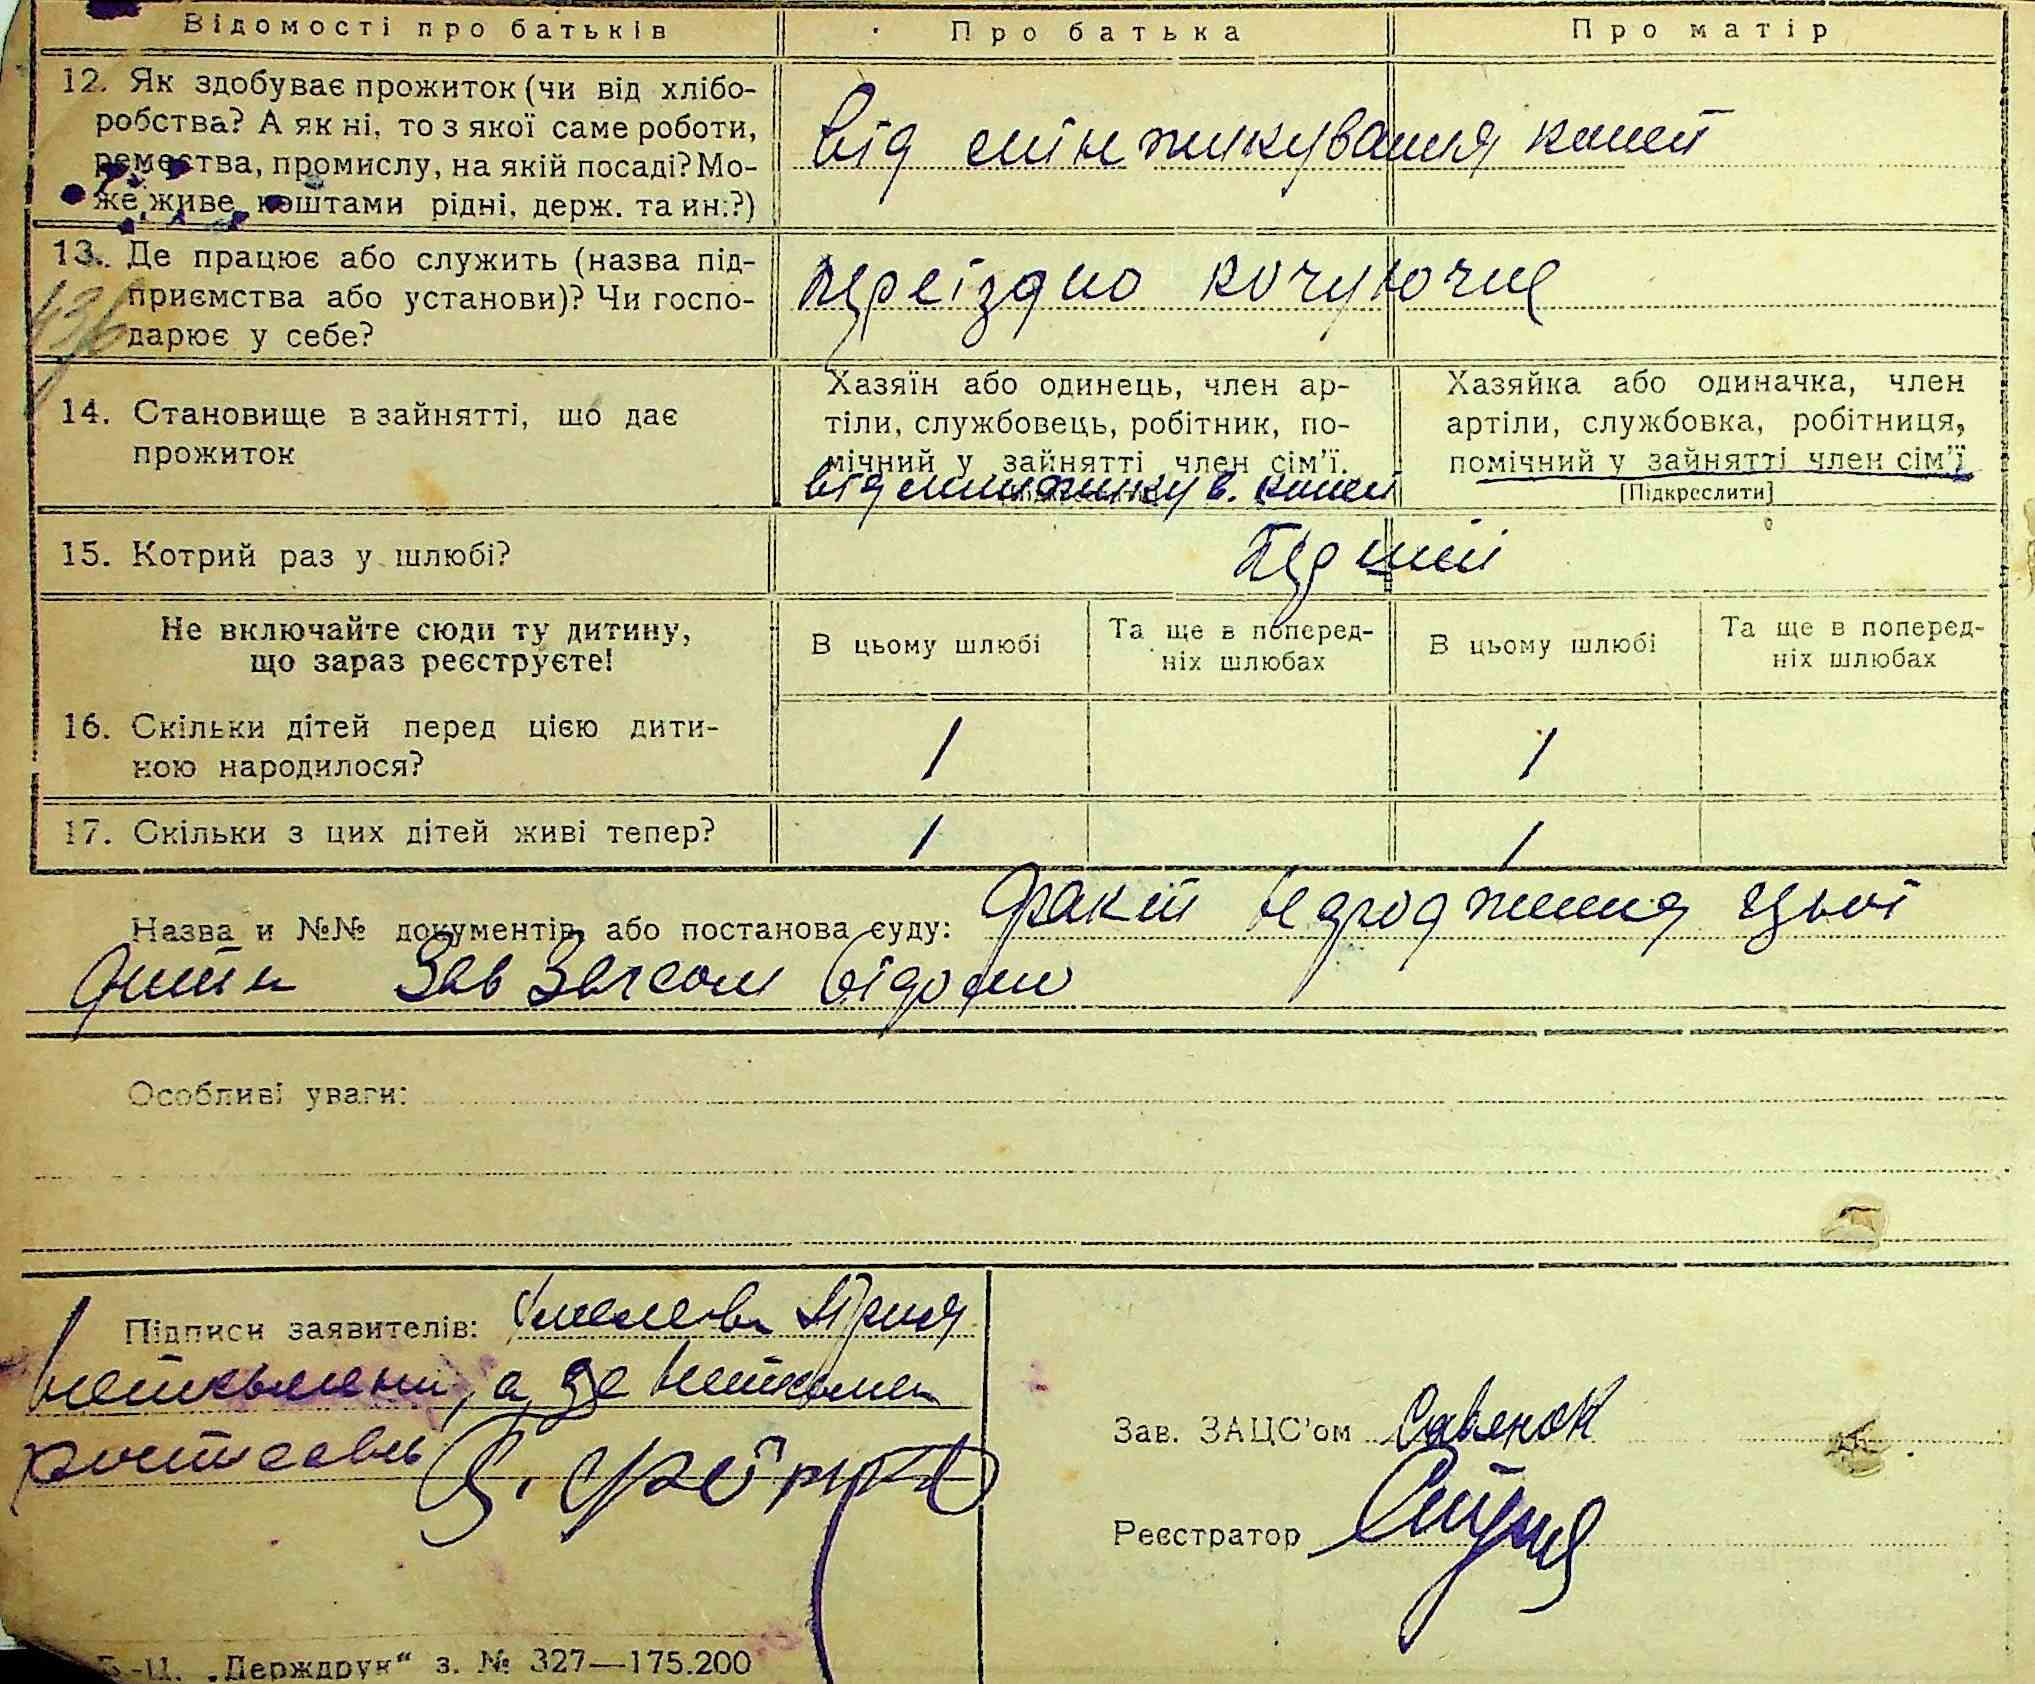 Відомості про батьків Про батька Про матір
12. Як здобуває прожиток (чи від хлібо-
робства? А як ні, то з якої саме роботи,
ремества, промислу, на якій посаді? Мо-
же живе коштами рідні, держ. та ин.?)
від мінжикування коней
13. Де працює або служить (назва під-
приємства або установи)? Чи госпо-
дарює у себе?
переїздно кочуюче
14. Становище в зайнятті, що дає
прожиток
Хазяїн або одинець, член ар-
тіли, службовець, робітник, по-
мічний у зайнятті член сім'ї.
від минжикув. коней
Хазяйка або одиначка, член
артіли, службовка, робітниця,
помічний у зайнятті член сім'ї
[Підкреслити]
15. Котрий раз у шлюбі? Перший
Не включайте сюди ту дитину,
що зараз реєструєте!
В цьому шлюбі Та ще в поперед-
ніх шлюбах В цьому шлюбі Та ще в поперед-
ніх шлюбах
16. Скільки дітей перед цією дити-
ною народилося? 1 1
17. Скільки з цих дітей живі тепер? 1 1
Назва и №№ документів або постанова суду: факт народження цьої
дити Зав Загсом відомо
Особливі уваги:
Підписи заявителів:
неписьмени, а за неписьмен
росписавсь
Зав. ЗАЦС'ом Савенок
Реєстратор
„Держдрук“ з. № 327—175.200